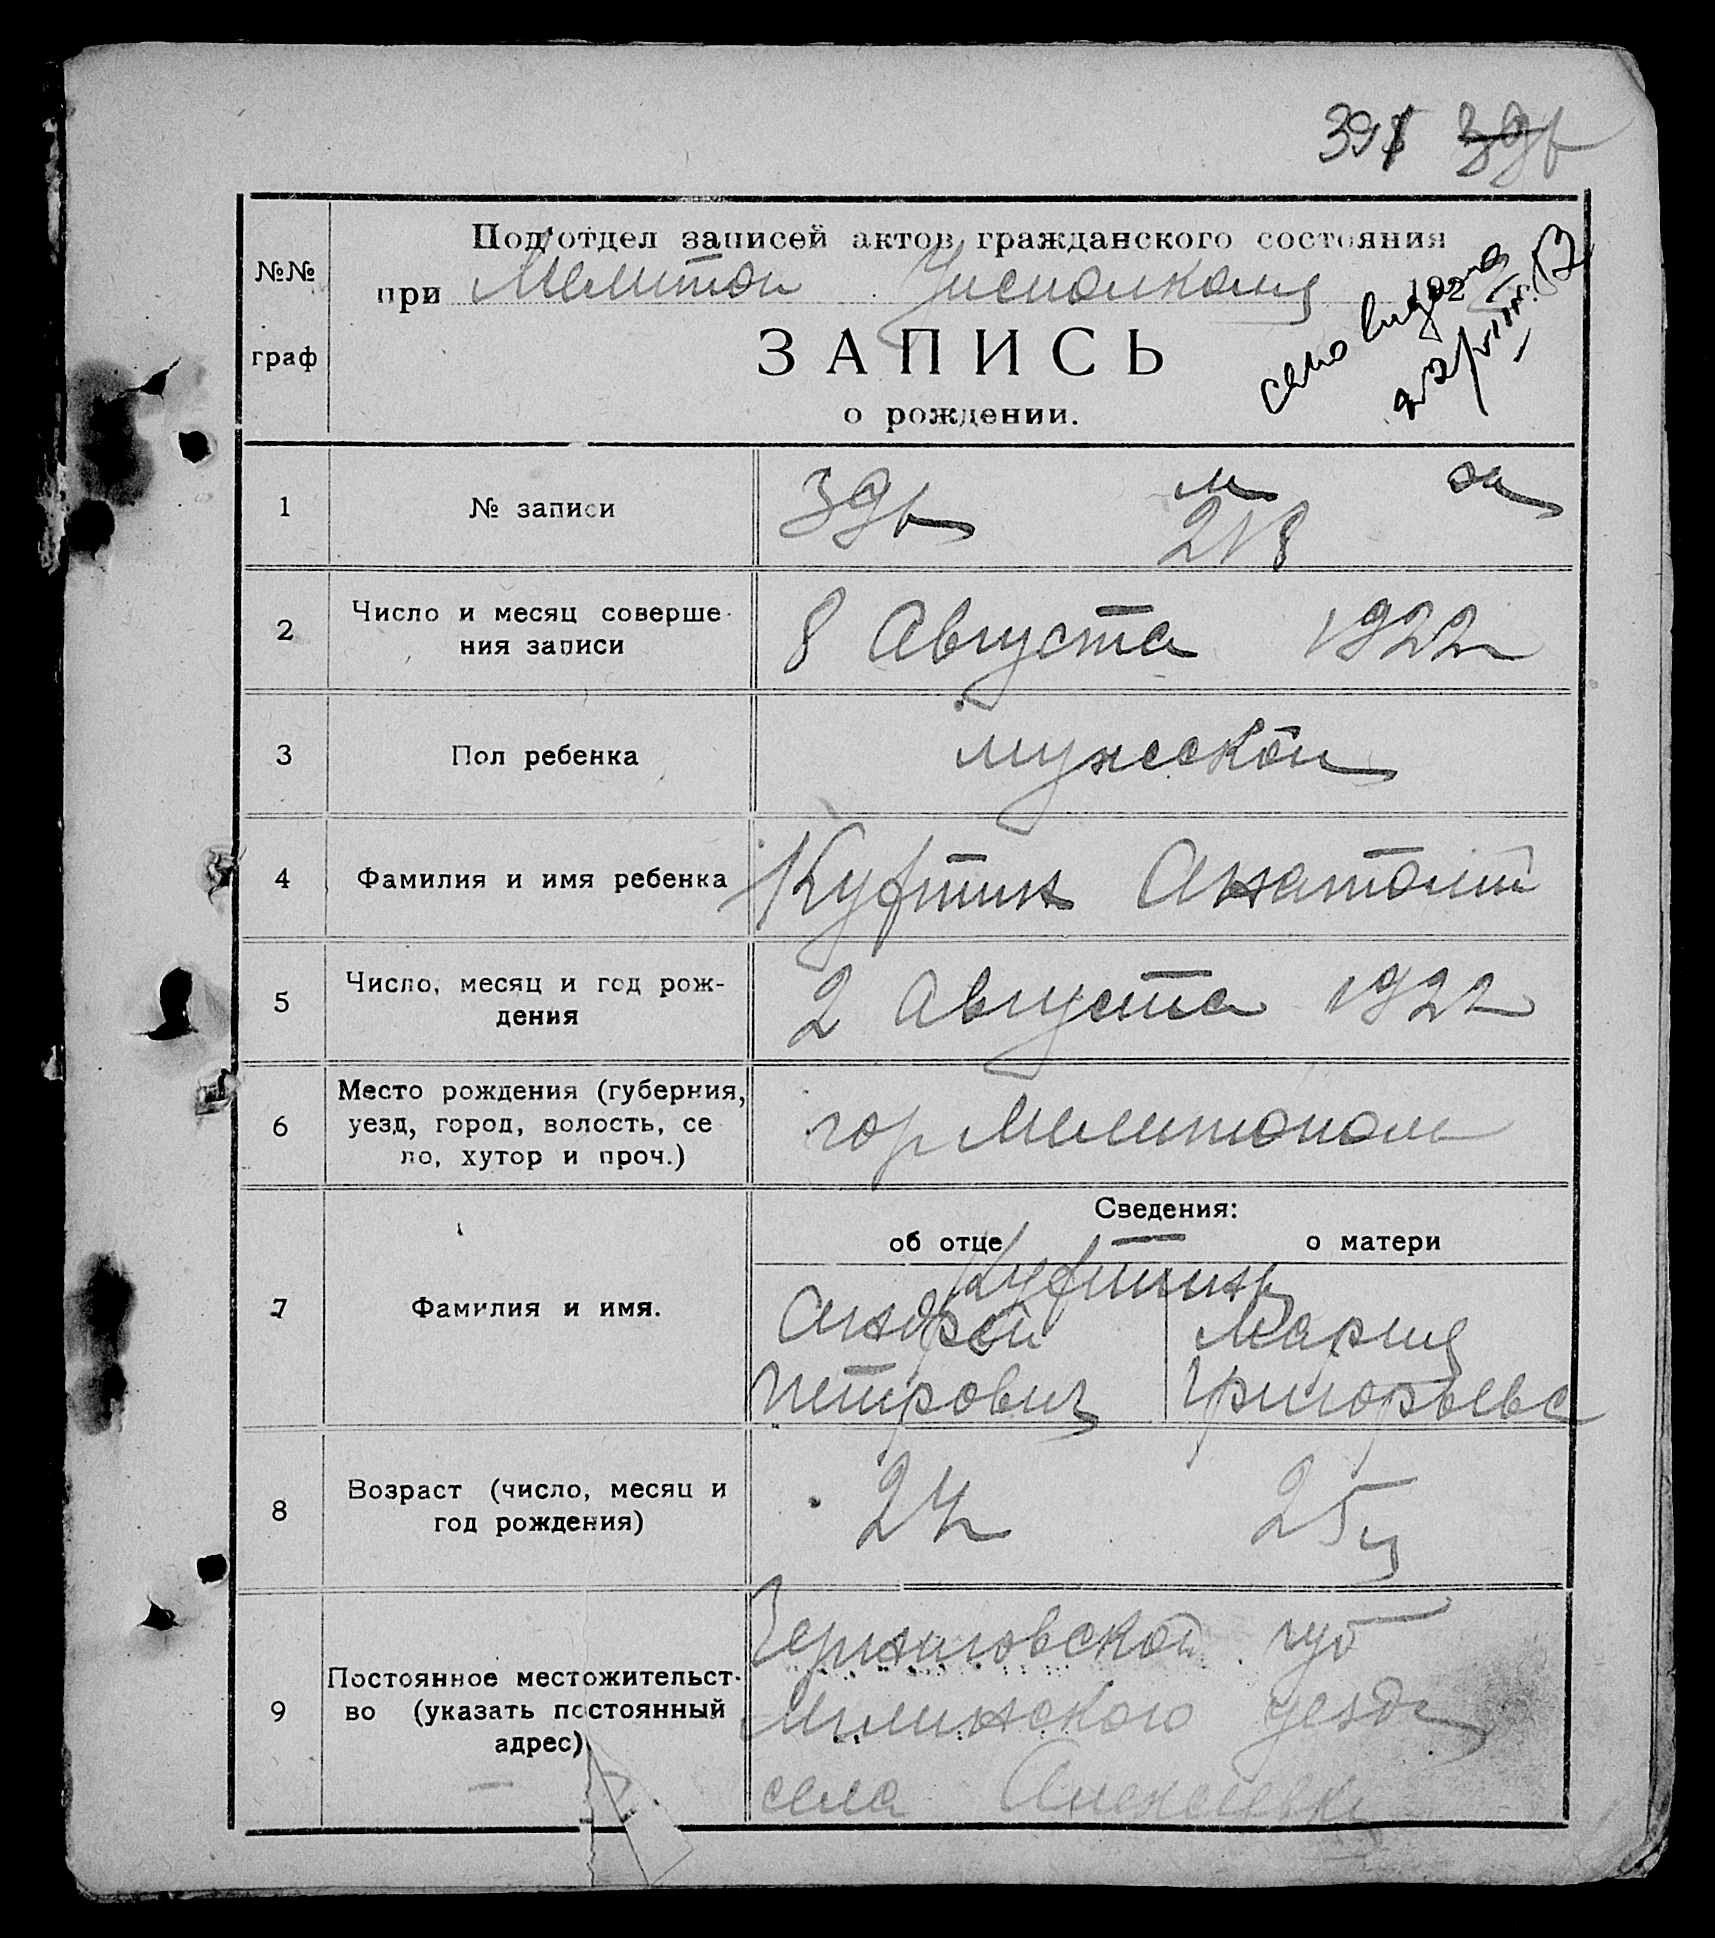 Под'отдел записей актов гражданского состояния
при Мелитоп Уисполкома 192
ЗАПИСЬ
о рождении.
№№ граф
1 № записи 396 м 218
2 Число и месяц соверше-
ния записи 8 Августа 1922 г
3 Пол ребенка мужской
4 Фамилия и имя ребенка Куфтин Анатолий
5 Число, месяц и год рож-
дения 2 Августа 1922
6 Место рождения (губерния,
уезд, город, волость, се
ло, хутор и проч.) гор Мелитополь
Сведения:
об отце о матери
Куфтины
7 Фамилия и имя. Андрей Мария
Петрович Григорьевс
8 Возраст (число, месяц и
год рождения) 24 25
9 Постоянное местожительст-
во (указать постоянный
адрес)
Черниговской губ
Мглинского уезда
села Алексеевки